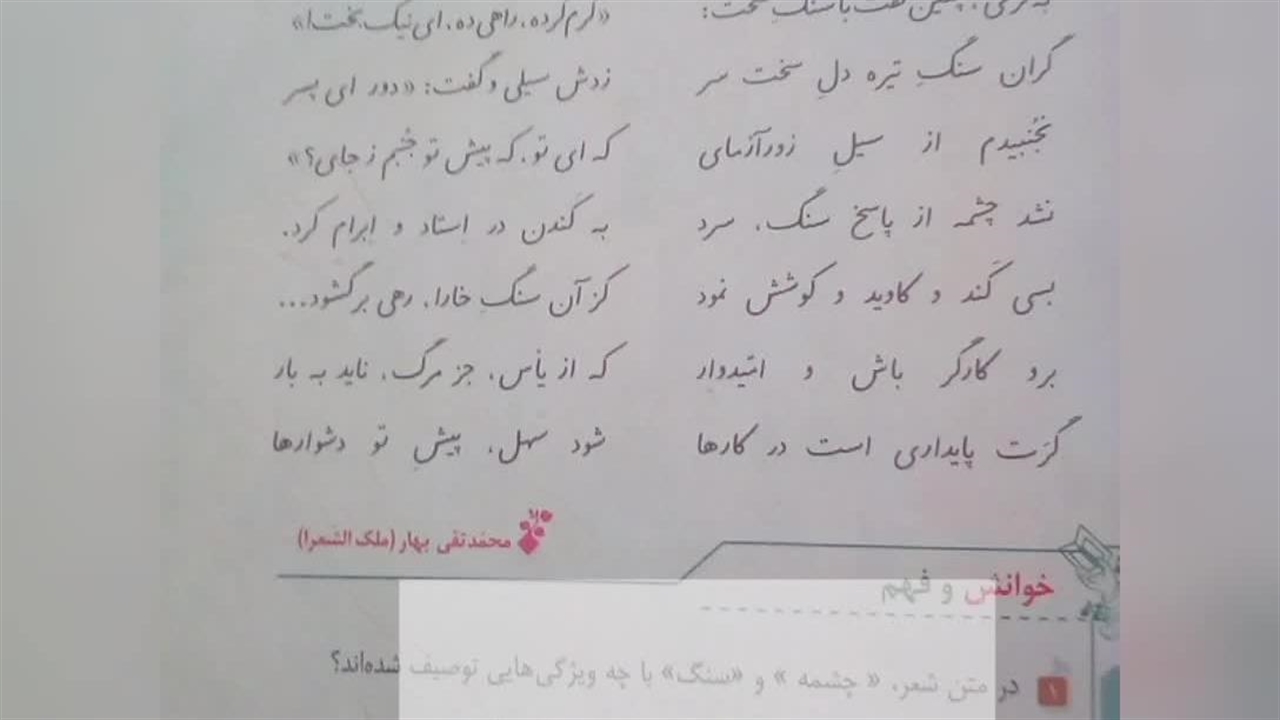 به نرمی، چنین گفت با سنگ سخت: «کرم کرده، راهی ده، ای نیک بخت!»
گران سنگِ تیره دلِ سخت سر زدش سیلی و گفت: «دور ای پسر
نَجُنبیدم از سیلِ زورآزمای که ای تو، که پیش تو جُنبم ز جای؟»
نشد چشمه از پاسخ سنگ، سرد به کَندن در اِستاد و اِبرام کرد.
بسی کَند و کاوید و کوشش نمود کز آن سنگِ خارا، رهی برگشود...
برو کارگر باش و امّیدوار که از یأس، جز مرگ، ناید به بار
گَرَت پایداری است در کارها شود سهل، پیشِ تو دشوارها
محمّدتقی بهار (ملک الشعرا)
خوانش و فهم
۱ در متن شعر، « چشمه » و «سنگ» با چه ویژگی‌هایی توصیف شده‌اند؟